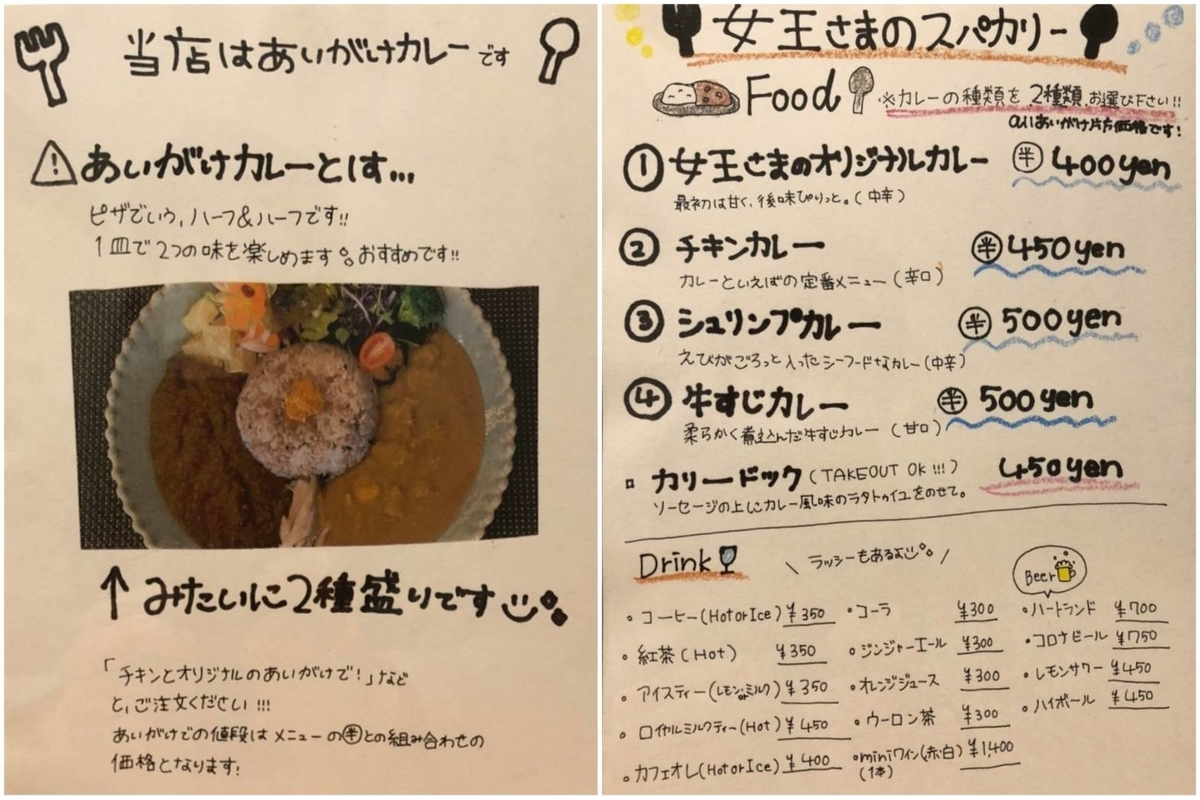 当店はあいがけカレーです
あいがけカレーとは...
ピザでいう、ハーフ&ハーフです!!
1皿で2つの味を楽しめます。おすすめです!!
↑みたいに2種盛りです
「チキンとオリジナルのあいがけで!」など
と、ご注文ください!!!
あいがけでの値段はメニューの㊥との組み合わせの
価格となります!
女王さまのスパカリー
Food ※カレーの種類を2種類、お選び下さい!!
allあいがけ片方価格です!
① 女王さまのオリジナルカレー 半 400yen
最初は甘く、後味ぴりっと。(中辛)
② チキンカレー 半 450yen
カレーといえばの定番メニュー(辛口)
③ シュリンプカレー 半 500yen
えびがごろっと入ったシーフードなカレー(中辛)
④ 牛すじカレー 半 500yen
柔らかく煮込んだ牛すじカレー(甘口)
カリードック(TAKEOUT OK!!!) 450yen
ソーセージの上にカレー風味のラタトゥイユをのせて。
Drink \ ラッシーもあるよ /
Beer
・コーヒー(Hot or Ice) ¥350
・紅茶(Hot) ¥350
・アイスティー(レモンorミルク) ¥350
・ロイヤルミルクティー(Hot) ¥450
・カフェオレ(Hot or Ice) ¥400
・コーラ ¥300
・ジンジャーエール ¥300
・オレンジジュース ¥300
・ウーロン茶 ¥300
・miniワイン(赤・白) ¥1,400
(1本)
・ハートランド ¥700
・コロナビール ¥750
・レモンサワー ¥450
・ハイボール ¥450